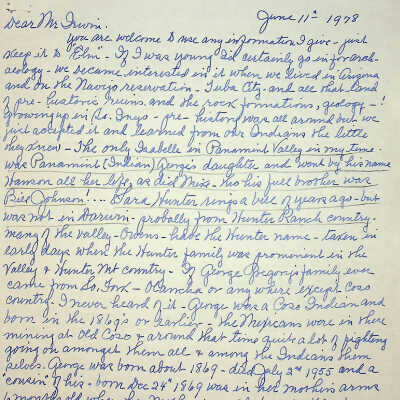 June 11th 1978
Dear Mr. Irwin.
you are welcome to use any information I give - just
keep it to "Eln" - If I was young I'd certainly go in for arch-
aeology - we became interested in it when we lived in Arizona
and on the Navajo reservation - Tuba City - and all that land
of pre-historic ruins and the rock formations, geology - !
growing up in So. Inyo - pre-history was all around but we
just accepted it and learned from our Indians the little
they knew - The only Isabelle in Panamint Valley in my time -
was Panamint (Indian) George's daughter and went by his name
Hanson all her life, as did Mike - tho his full brother was
Bill Johnson! ... Sara Hunter rings a bell of years ago - but
was not in Darwin - probally from Hunter Ranch country -
many of the Valley - Owens - have the Hunter name - taken in
early days when the Hunter family was prominent in the
Valley & Hunter Mt country - If George Gregory's family ever
came from Lo, Fork - Olancha or any where except Coso
country - I never heard of it - George was a Coso Indian and
born in the 1869's or earlier - the Mexicans were in there
mining at Old Coso & around that time quit a lot of fighting
going on amongst them all & among the Indians them
selves. George was born about 1869 - died July 2nd 1955 and a
"cousin" of his - born Dec 24th 1869 was in her mothers arms
months old when